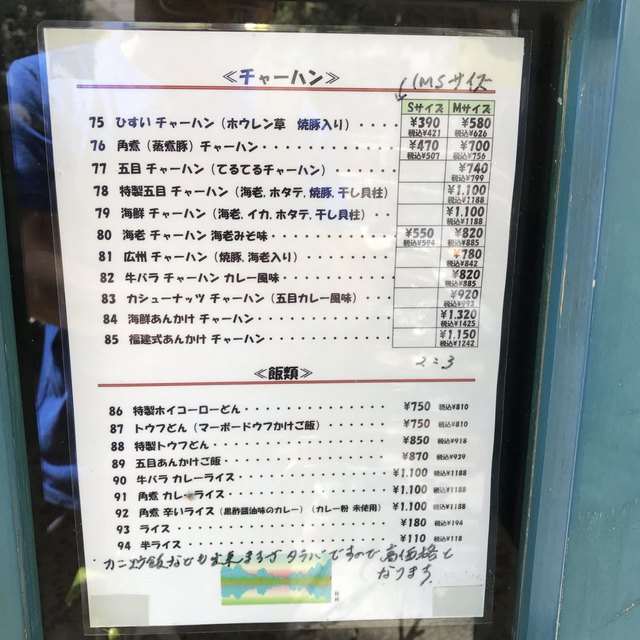 ≪チャーハン≫
MSサイズ
Sサイズ Mサイズ
75 ひすい チャーハン（ホウレン草 焼豚入り）・・・・ ¥390 税込¥421 ¥580 税込¥626
76 角煮（蒸煮豚）チャーハン・・・・・・・・・・・・ ¥470 税込¥507 ¥700 税込¥756
77 五目 チャーハン（てるてるチャーハン）・・・・・・ ¥740 税込¥799
78 特製五目 チャーハン（海老, ホタテ, 焼豚, 干し貝柱） ¥1,100 税込¥1188
79 海鮮 チャーハン（海老, イカ, ホタテ, 干し貝柱）・・ ¥1,100 税込¥1188
80 海老 チャーハン 海老みそ味・・・・・・・・・・・ ¥550 税込¥594 ¥820 税込¥885
81 広州 チャーハン（焼豚, 海老入り）・・・・・・・・ ¥780 税込¥842
82 牛バラ チャーハン カレー風味・・・・・・・・・・ ¥820 税込¥885
83 カシューナッツ チャーハン（五目カレー風味）・・・ ¥920 税込¥993
84 海鮮あんかけ チャーハン・・・・・・・・・・・・ ¥1,320 税込¥1425
85 福建式あんかけ チャーハン・・・・・・・・・・・ ¥1,150 税込¥1242
2:3
≪飯類≫
86 特製ホイコーローどん・・・・・・・・・・・・ ¥750 税込¥810
87 トウフどん（マーボードウフかけご飯）・・・・・ ¥750 税込¥810
88 特製トウフどん・・・・・・・・・・・・・・・ ¥850 税込¥918
89 五目あんかけご飯・・・・・・・・・・・・・・ ¥870 税込¥939
90 牛バラ カレーライス・・・・・・・・・・・・・ ¥1,100 税込¥1188
91 角煮 カレーライス・・・・・・・・・・・・・・ ¥1,100 税込¥1188
92 角煮 辛いライス（黒酢醤油味のカレー）（カレー粉 未使用） ¥1,100 税込¥1188
93 ライス・・・・・・・・・・・・・・・・・・・ ¥180 税込¥194
94 半ライス・・・・・・・・・・・・・・・・・・ ¥110 税込¥118
カニ炒飯なども出来ますがタラバですので高価格と
なります